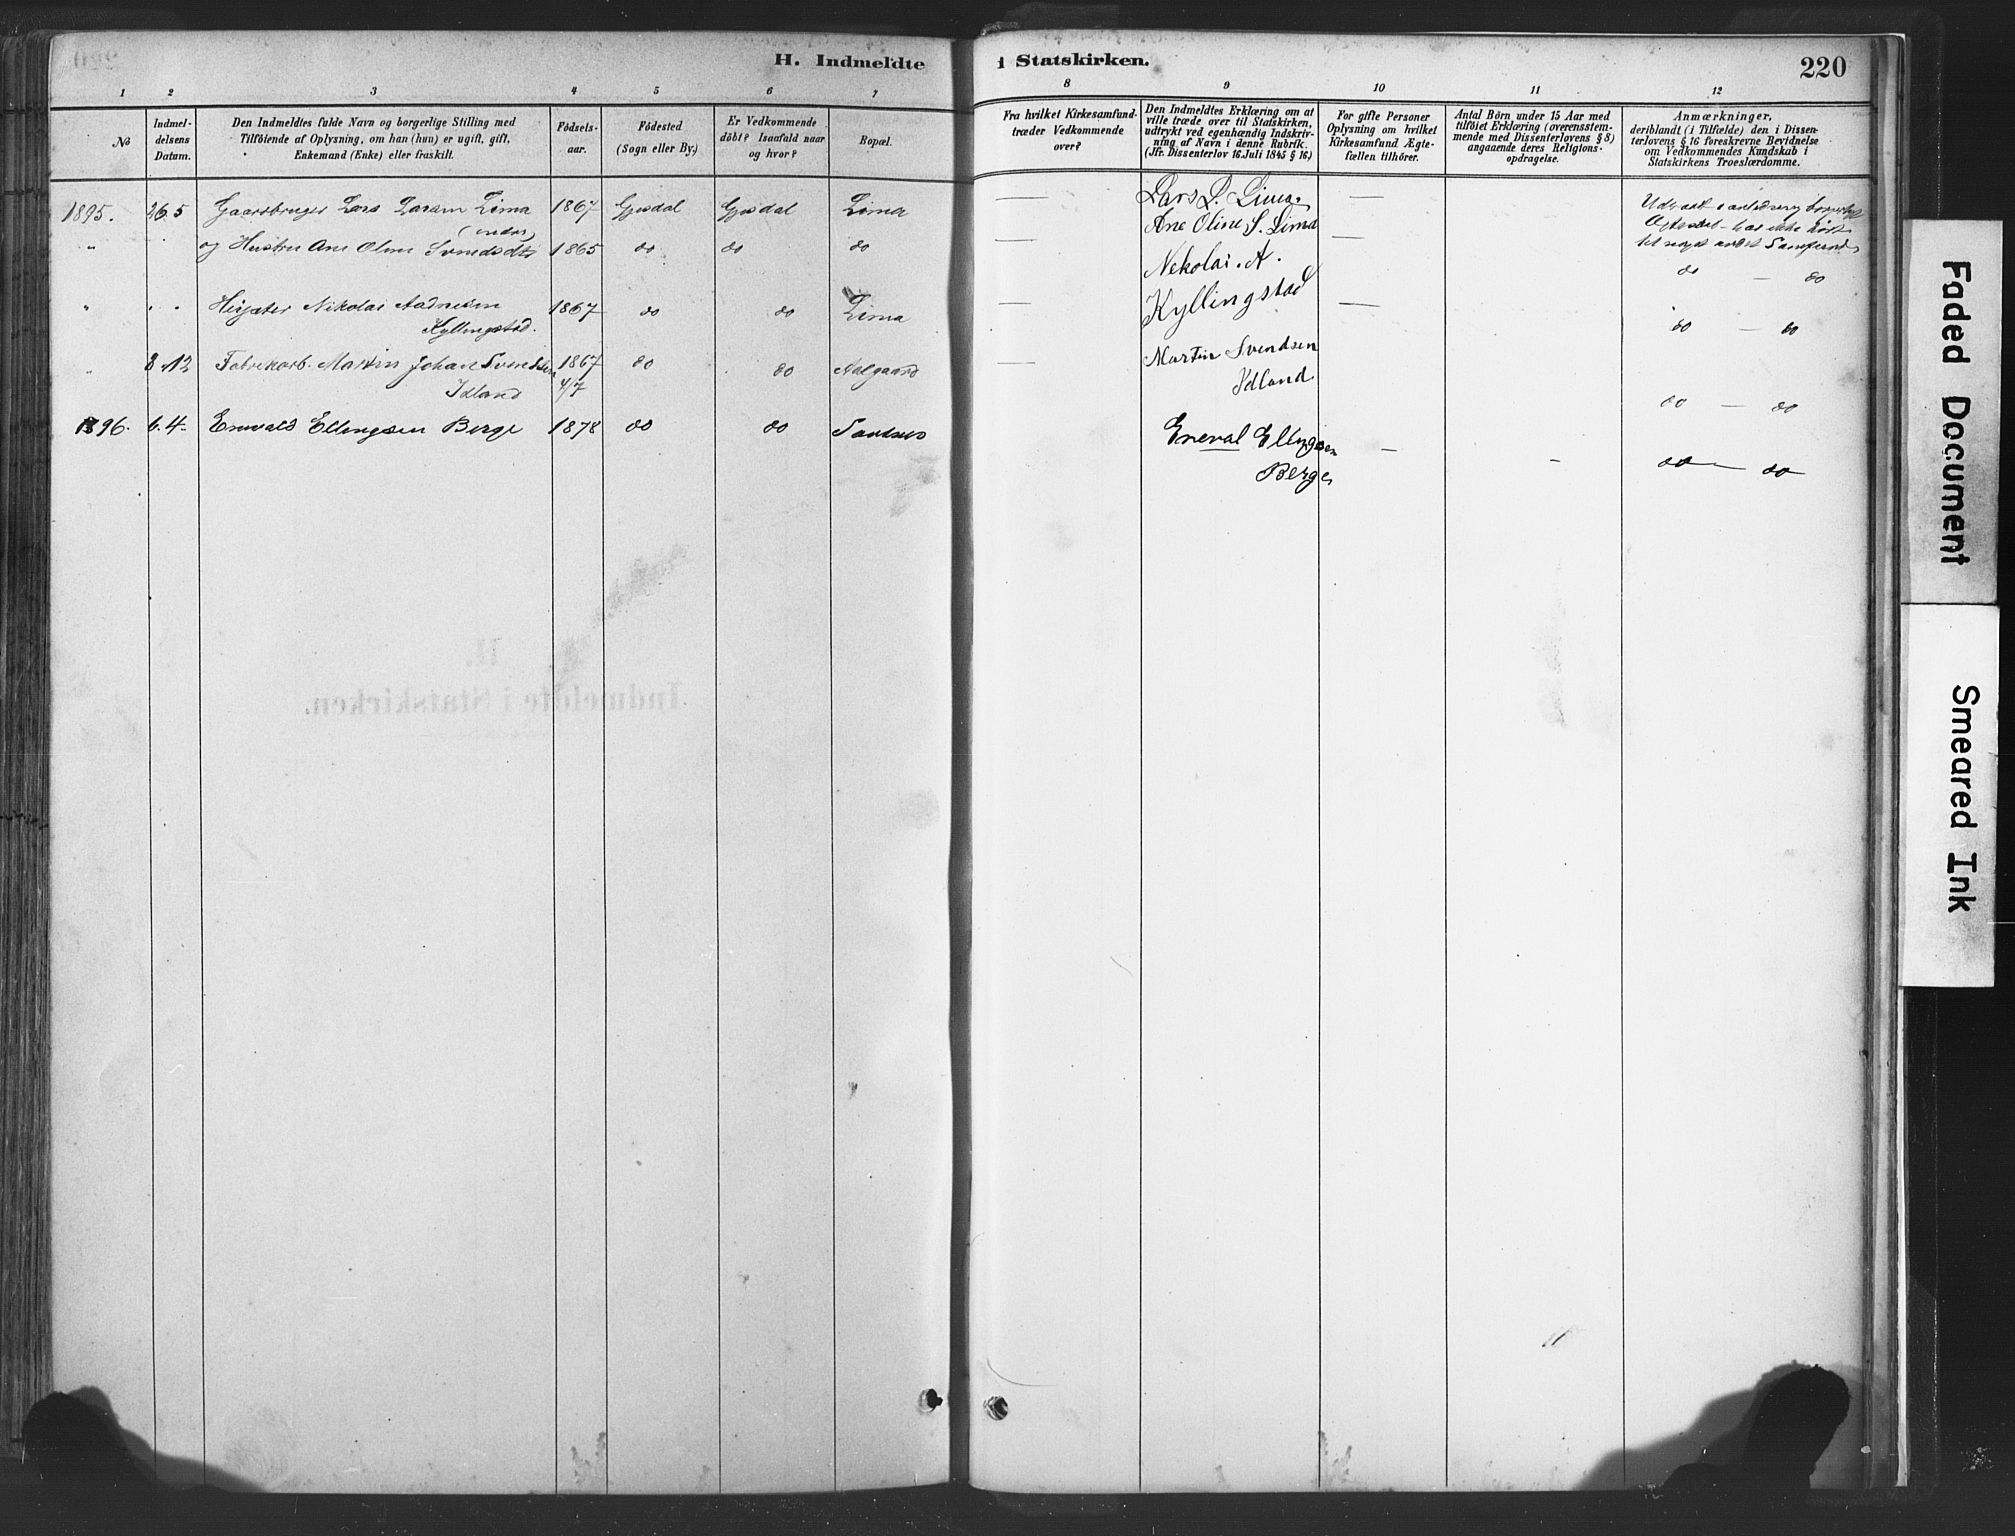 H. Indmeldte i Statskirken.
220
1 2 3 4 5 6 7 8 9 10 11 12
No
Indmel-
delsens
Datum.
Den Indmeldtes fulde Navn og borgerlige Stilling med
Tilföiende af Oplysning, om han (hun) er ugift, gift,
Enkemand (Enke) eller fraskilt.
Födsels-
aar.
Födested
(Sogn eller By.)
Er Vedkommende
döbt? Isaafald naar
og hvor?
Bopæl.
Fra hvilket Kirkesamfund-
træder Vedkommende
over?
Den Indmeldtes Erklæring om at
ville træde over til Statskirken,
udtrykt ved egenhændig Indskriv-
ning af Navn i denne Rubrik.
(Jfr. Dissenterlov 16. Juli 1845 § 16.)
For gifte Personer
Oplysning om hvilket
Kirkesamfund Ægte-
fællen tilhörer.
Antal Börn under 15 Aar med
tilföiet Erklæring (overensstem-
mende med Dissenterlovens § 8)
angaaende deres Religions-
opdragelse.
Anmærkninger,
deriblandt (i Tilfælde) den i Dissen-
terlovens § 16 foreskrevne Bevidnelse
om Vedkommendes Kundskab i
Statskirkens Troeslærdomme.
1895. 26.5 Gaardbruger Lars Larsen Lima 1867 Gjesdal Gjesdal Lima — Lars L. Lima. —
" " og Hustru Ane Oline Svendsdtr 1865 do do do — Ane Oline S. Lima —
do — do
" " " Nikolai Aadnesen 1867 do do Lima — Nekolai. A. —
Kyllingstad.
Kyllingstad
do — do
" 8.12 Fabrikarb. Martin Johan Svendsen 1867 do do Aalgaard — Martin Svendsen
Idland 4/7
Idland
do — do
1896. 6.4. Enevald Ellingsen Berge 1878 do do Sandnes Eneval Ellingsen —
Berge
— do — do
Faded Document
Smeared Ink
H.
Indmeldte i Statskirken.